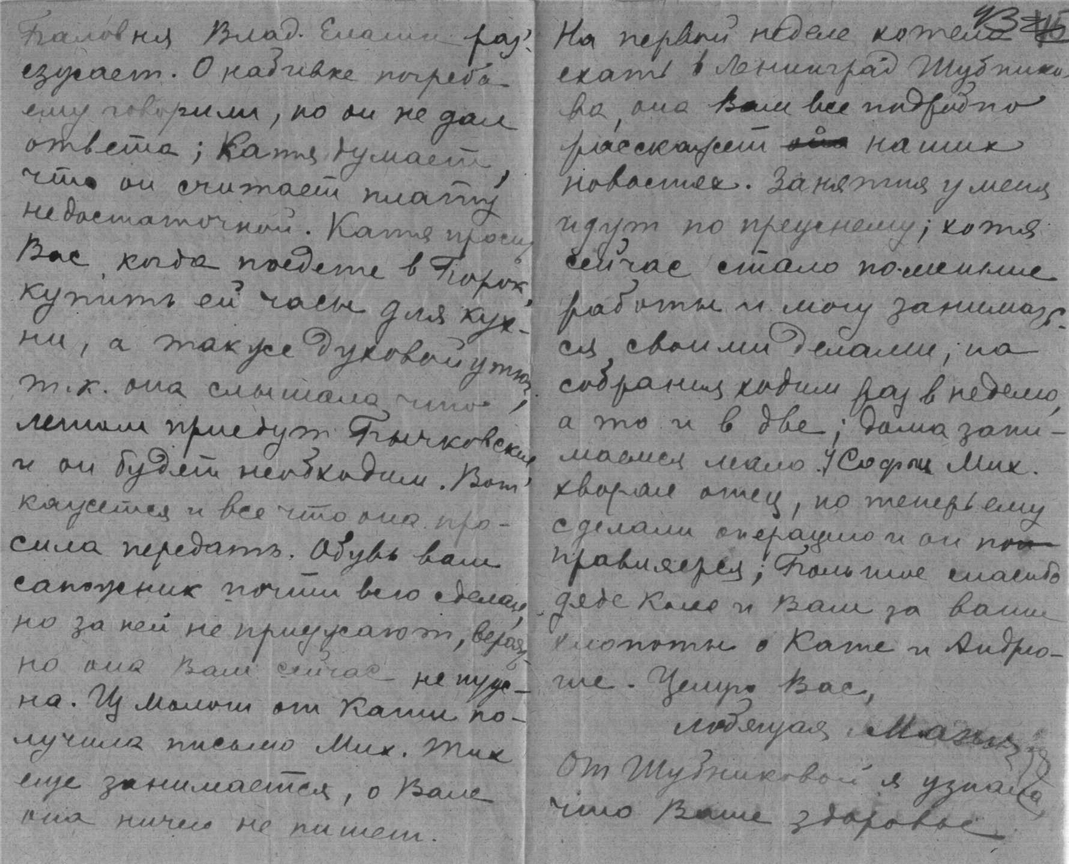 Влад.
О набивке погреба
ему говорили, но он не дал
ответа; Катя думает,
что он считает плату
недостаточной. Катя просит
Вас, когда поедете в
купить ей часы для кух-
ни, а также духовой утюг,
т.к. она слышала что
летом приедут
и он будет необходим. Вот
кажется и все что она про-
сила передать. Обувь вам
сапожник почти всю сделал,
но за ней не приезжают,
но она Вам сейчас не нуж-
на. Из Мологи от Кати по-
лучила письмо Мих. Тих
еще занимается, о Вале
она ничего не пишет.
На первой неделе хотела
ехать в Ленинград Шубнико-
ва, она Вам все подробно
расскажет о наших
новостях. Занятия у меня
идут по прежнему; хотя
сейчас стало поменьше
работы и могу занимать-
ся своими делами, на
собрания ходим раз в неделю,
а то и в две; дома зани-
маемся мало. У Софьи Мих.
хворал отец, но теперь ему
сделали операцию и он по
правляется; Большое спасибо
дяде Коле и Вам за ваши
хлопоты о Кате и Андрю-
ше. Целую Вас,
любящая Маня
От Шубниковой я узнала,
что Ваше здоровье